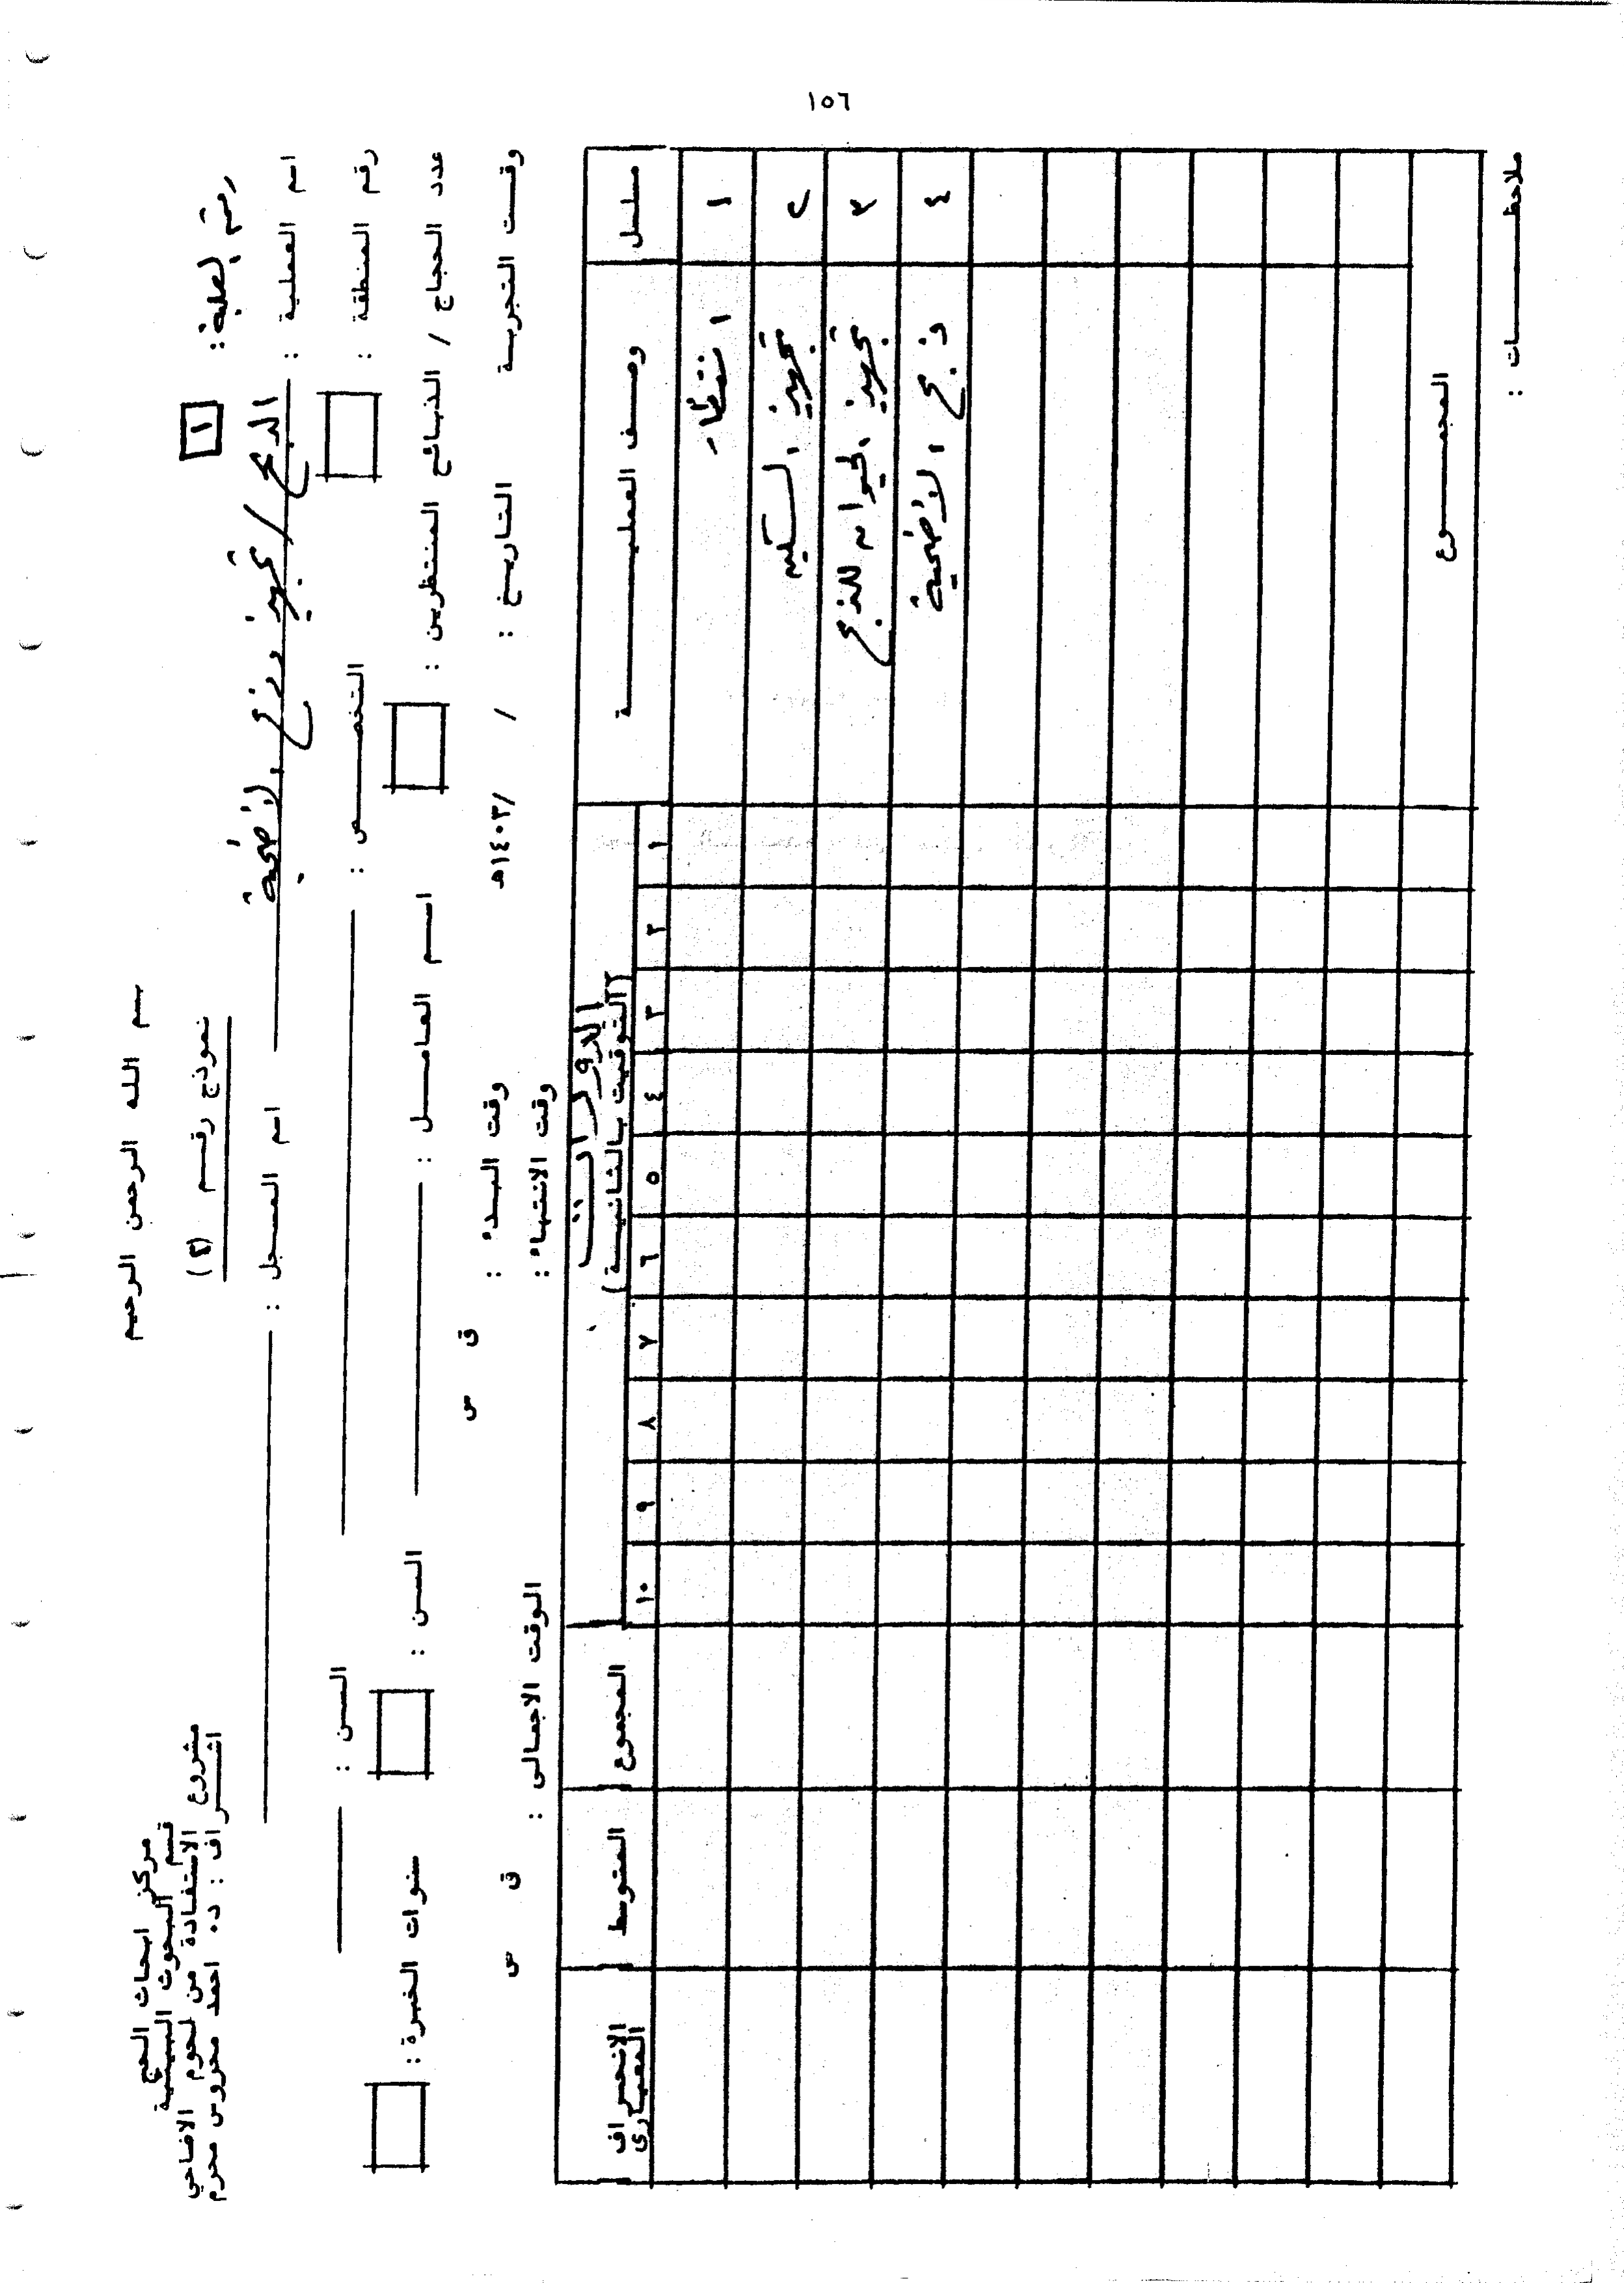 ١٥٦
بسم الله الرحمن الرحيم
مركز ابحاث الحج
قسم البحوث البيئية
مشروع الاستفادة من لحوم الاضاحي
اشراف : د. احمد محروس محرم
نموذج رقم (٢)
رقم العملية : ١
اسم العملية : الذبح / تجهيز وذبح الأضحية اسم المسجل :
رقم المنطقة : التخصص : السن :
عدد الحجاج / الذبائح المنتظرين : اسم العامل : السن : سنوات الخبرة :
وقت التجربة التاريخ : / /١٤٠٣هـ وقت البدء : ق س
وقت الانتهاء : ق س الوقت الاجمالى :
مسلسل وصف العملية الدورات المجموع المتوسط الانحراف المعيارى
(التوقيت بالثانية)
١ ٢ ٣ ٤ ٥ ٦ ٧ ٨ ٩ ١٠
١ انتظار
٢ تجهيز السكين
٣ تجهيز الحيوان للذبح
٤ ذبح الأضحية
المجموع
ملاحظات :